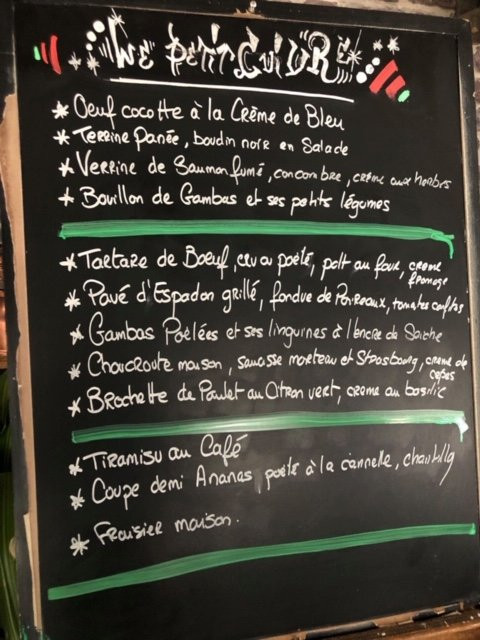 Le Petit Cuivré
* Oeuf cocotte à la Crème de Bleu
* Terrine Panée, boudin noir en Salade
* Verrine de Saumon fumé, concombre, crème aux herbes
* Bouillon de Gambas et ses petits légumes
* Tartare de Boeuf, cru ou poêlé, palt au four, creme fromage
* Pavé d'Espadon grillé, fondue de Poireaux, tomates confites
* Gambas Poêlées et ses linguines à l'encre de Seiche
* Choucroute maison, saucisse morteau et Strasbourg, creme de cepes
* Brochette de Poulet au Citron vert, creme au basilic
* Tiramisu au Café
* Coupe demi Ananas, poêlé à la cannelle, chantilly
* Fraisier maison.